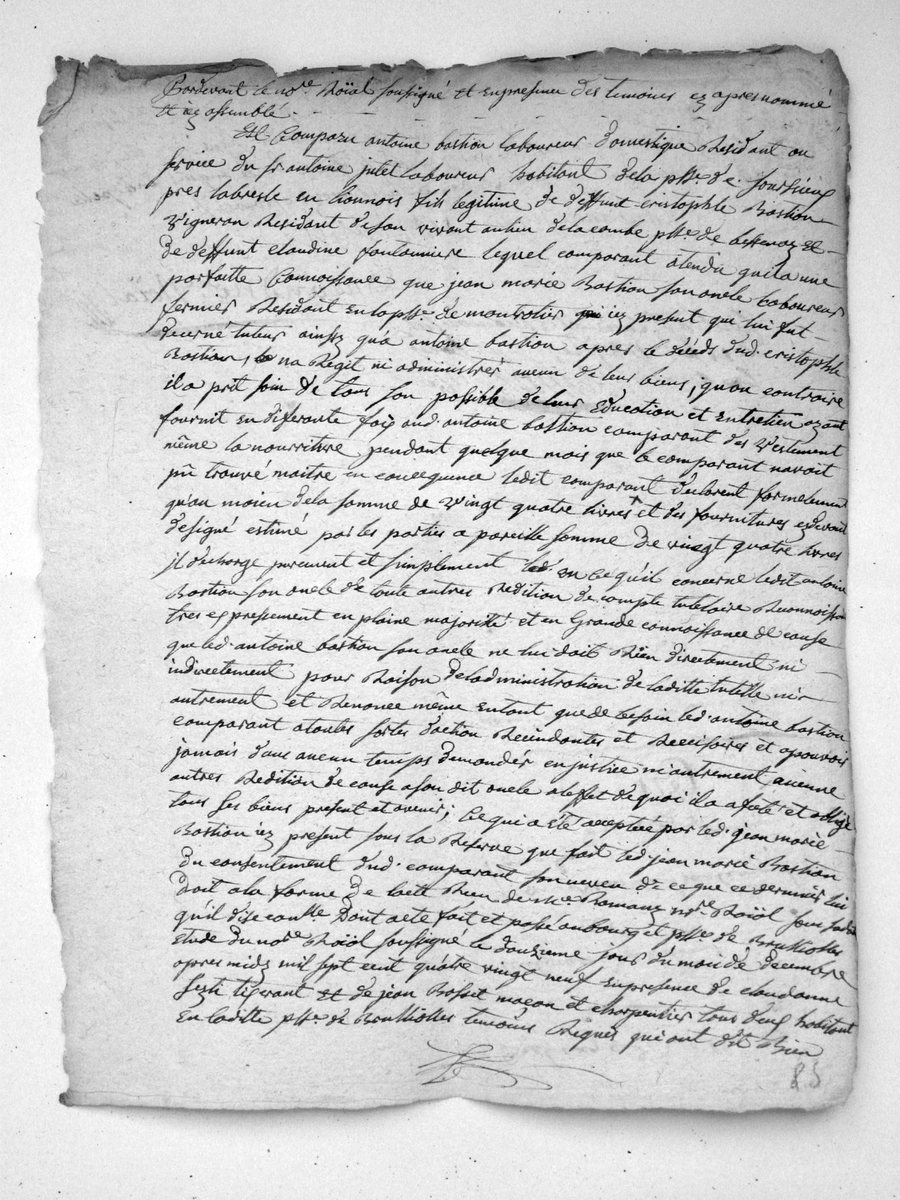 Pardevant le nore. Roïal soussigné et en presence des temoins cy apres nommé
et icy assemblé.
Est Comparu antoine bastion laboureur domestique Residant au
service du sr antoine julet laboureur habitant dela psse. de Sourcieux
pres labresle en Lionnois fils legitime de deffunt cristophle Bastion
Vigneron Residant de son vivant au lieu delacombe psse. de bessenay et
de deffunt claudine fontanniere lequel comparant atendu quil a une
parfaitte Connoissance que jean marie Bastion son oncle laboureur
fermier Residant en la psse. de montrotier icy present qui lui fut
decerné tuteur ainsy qua antoine bastion apres le décéds dud. cristophle
Bastion, na Regit ni administrér aucun de leurs biens, quau contraire
il a prit soin de tous son possible de leur Education et Entretien ayant
fournit en diferante fois aud. antoine bastion comparant des Vestement
même la nourriture pendant quelque mois que le comparant navoit
pû trouvé maitre en concequence ledit comparant declarent formelement
qu'au moien dela somme de Vingt quatre livres et des fournitures cy devant
designé estimé par les parties a pareille somme de vingt quatre livres
il decharge purement et simplement led. en ce quil concerne ledit antoine
Bastion son oncle de toute autres Redition de compte tutelaire Reconnoissant
tres expressement en plaine majorité et en Grande connoissance de cause
que led. antoine bastion son oncle ne lui doit Rien directement ni
indirectement pour Raison deladministration de laditte tutelle ni
autrement et Renonce même entant que de besoin led. antoine bastion
comparant atoutes sortes daction Recindantes et Reccisoires et apouvoir
jamais dans aucun temps demandér en justice ni autrement aucune
autres Redition de cause a son dit oncle a leffet de quoi il a afecté et obligé
tous ses biens present et avenir; Ce qui a été acceptée par led. jean marie
Bastion icy present sous la Reserve que fait led jean marie Bastion
du consentement dud. comparant son neveu de ce que ce dernier lui
doit a la forme de lacte Reçu de Me. Romany nore Roïal
qu'il dise Dont acte fait et passé au bourg et psse. de Brullioles
Etude du nore. Roïal soussigné le douzieme jour du mois de decembre
apres midy mil sept cent quatre vingt neuf en presence de claudanne
tisserant et de jean Bossit maçon et charpentier tous deux habitant
En laditte psse. de Brullioles temoins Requis qui ont dit Bien
85